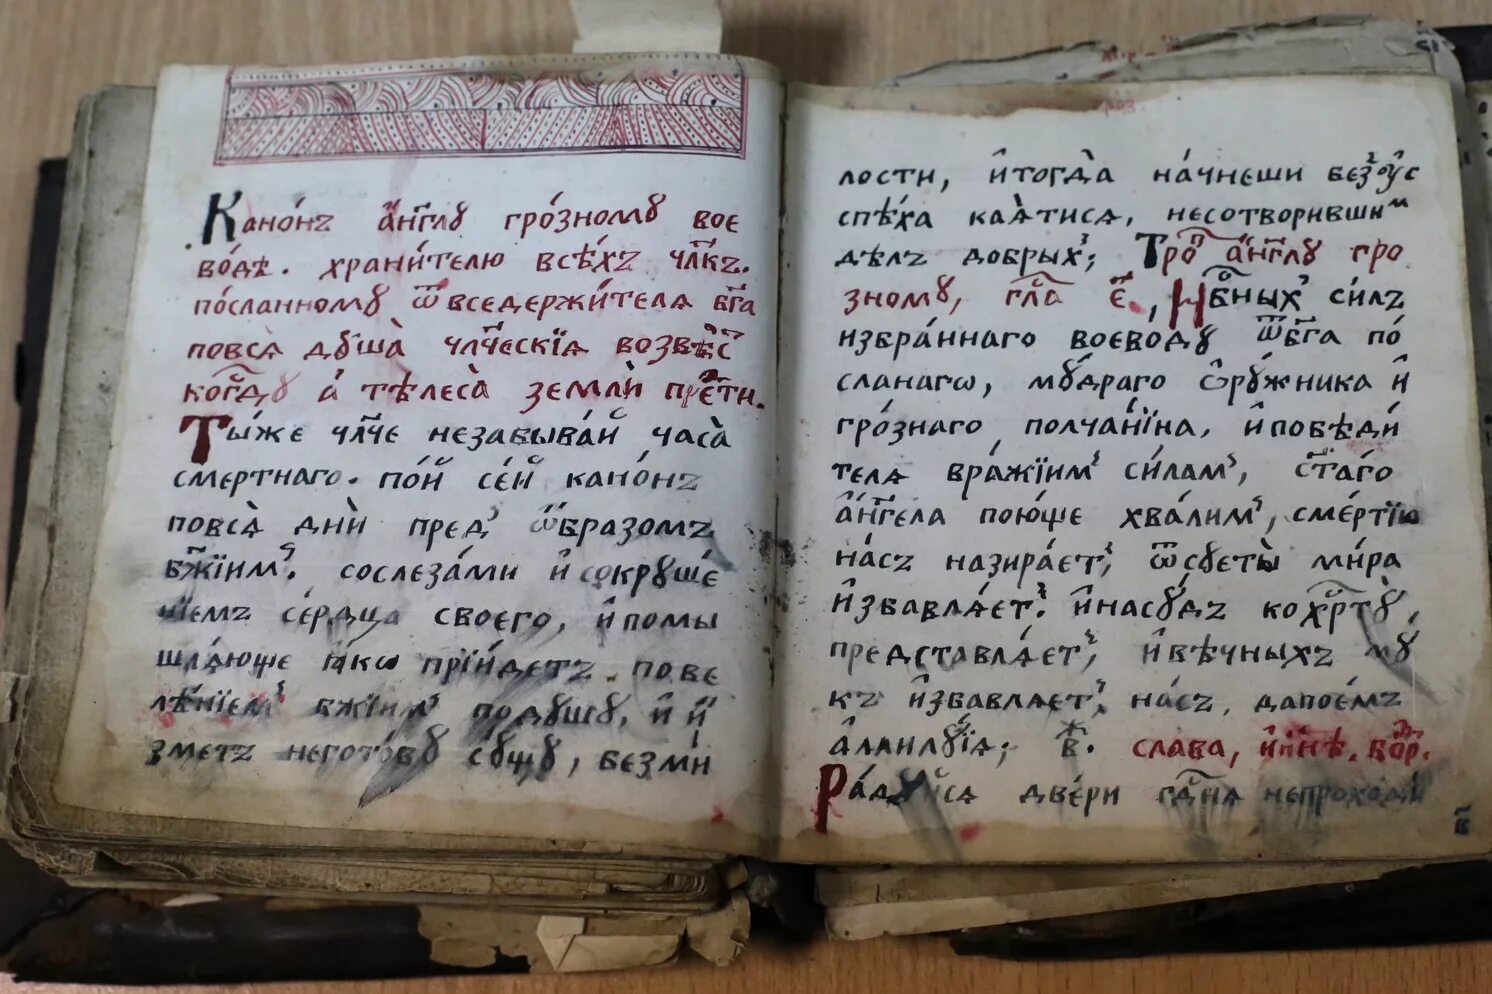 Кано́нъ а҆́нг҃лꙋ гро́зномꙋ вое
во́дѣ. храни́телю всѣ́хъ чл҃къ.
по́сланномꙋ ѿ вседержи́телѧ бг҃а
повсѧ̀ дꙋша̀ чл҃ческїѧ возвѣс
а҆ тѣлеса̀ землѝ
Ты́же чл҃че незабыва́й часа̀
сме́ртнаго. по́й се́й кано́нъ
повсѧ̀ дн҃и пред̾ ѡ҆́бразомъ
бж҃їим̾. сослеза́ми и҆ сокрꙋше́
нїемъ се́рдца своего, и҆ помы
шлѧ́юще ꙗ҆́кѡ прїи́детъ пове
лѣ́нїем̾ бж҃їим̾ подꙋшꙋ, и҆ и҆
зметъ негото́вꙋ сꙋ́щꙋ, безми́
лости, и҆тогда̀ на́чнеши без̾ꙋс
спѣ́ха каѧтисѧ, несотворивши м
дѣлъ добрых̾; Тро п а҆́нг҃лꙋ гро
зномꙋ, гла҃ є҃, Нбⷭ҇ных̾ си́лъ
избра́ннаго воеводꙋ ѿбг҃а по́
сланагѡ, мꙋ́драго ѻ҆рꙋ́жника и҆
гро́знаго полча́нїна, и҆побѣди́
телѧ вра́жїим̾ си́лам̾, ст҃а́го
а҆́нг҃ела пою́ще хва́лим̾, сме́ртїю
на́съ назира́ет̾, ѿсꙋеты̀ ми́ра
и҆збавлѧ́ет̾. и҆насꙋ́дъ кохрⷭ҇тꙋ̀,
представлѧ́ет̾, и҆вѣ́чныхъ мꙋ́
къ и҆збавлѧет̾ на́съ, дапое́мъ
а҆ллилꙋїѧ; в҃ж. слава, и҆ ны́нѣ. бо́р.
Ра́дꙋйсѧ две́ри гдⷭ҇нѧ непроходи́